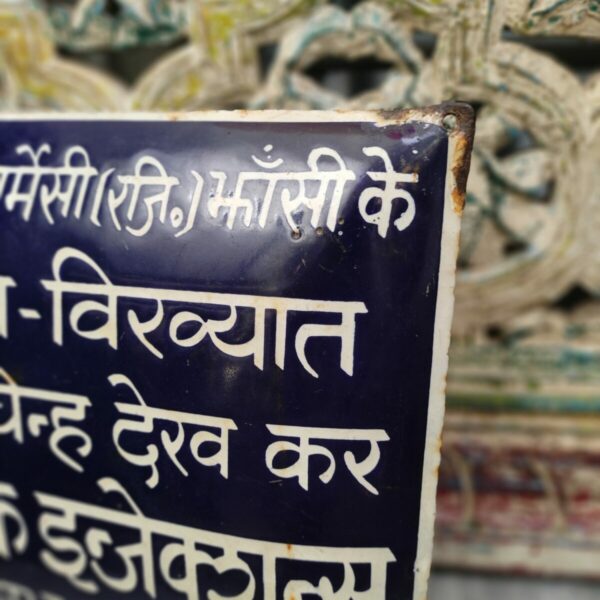 र्मेसी (रजि॰) झाँसी के
-विख्यात
चिन्ह देख कर
इन्जेक्शन्स